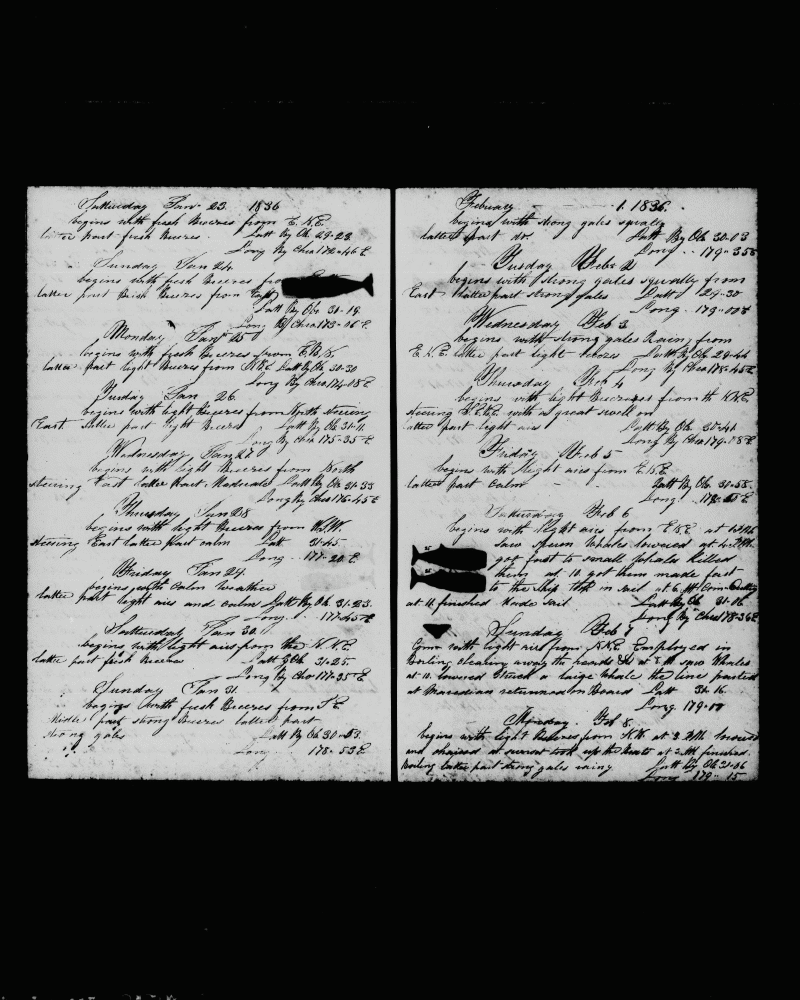 Satturday Jan 23 1836
begins with fresh Breezes from E.N.E.
latter part fresh Breezes. Latt By Ob 29-23
Long By Chro 172-46 E
Sunday Jan 24
begins with fresh Breezes from
latter part Brisk Breezes from East
Latt By Ob 31-19
Long By Chro 173-06 E
Monday Jan 25
begins with fresh Breezes from
latter part light Breezes from Latt By Ob 30-30
Long By Chro 174-08 E
Tusday Jan 26
begins with light Breezes from North steering
East latter part light Breezes Latt By Ob 31-11
Long By Chro 175-35 E
Wednesday Jan 27
begins with light Breezes from North
steering East latter Part Moderate Latt By Ob 31-33
Long By Chro 176-45 E
Thursday Jan 28
begins with light Breezes from
steering East latter Part calm Latt 31-45
Long 177-20 E
Friday Jan 29
begins with Calm Weather
latter part light aires and calms Latt By Ob 31-23
Long 177-45 E
Satturday Jan 30
begins with light airs from the
latter part fresh Breezes Latt By Ob 31-25
Long By Chro 177-35 E
Sunday Jan 31
begins with fresh Breezes from
Midle part strong Breezes latter part
strong gales Latt By Ob 30-03
Long 178-53 E
February 1 1836
begins with strong gales squaly
latter part do Latt By Ob 30-03
Long 179-35 E
Tusday Feb 2
begins with strong gales squally from
East latter part strong gales Latt 29-30
Long 179-00 E
Wednesday Feb 3
begins with strong gales Rain from
E.N.E. latter part light Latt By Ob 29-44
Long By Chro 178-45 E
Thursday Feb 4
begins with light Breezes from th
steering with a great swell on
latter part light airs Latt By Ob 31-41
Long By Chro 179-18 E
Friday Feb 5
begins with light aires from E.N.E.
latter part Calm Latt By Ob 31-58
Long
Satturday Feb 6
begins with light airs from at
Saw Sperm Whales lowered at
got fast to small Whales killed
them at 10 got them made fast
to the Ship in sail at 6 Com Cutting
at 11 finished Made Sail Latt By Ob 31-06
Long By Chro 178-36 E
Sunday Feb 7
Com with light airs from N.N.E. Employed in
Boiling clearing away the heads at Whales
at 10 lowered Struck a large Whale the line parted
at Meradian returned on Board Latt 31-16
Long 179-00
Monday Feb 8
begins with light Breezes from N.W. at 3 lowered
and chaised at sunset took up the Boats at finished
Boiling latter part strong gales rainy Latt By Ob 31-06
Long 179-15